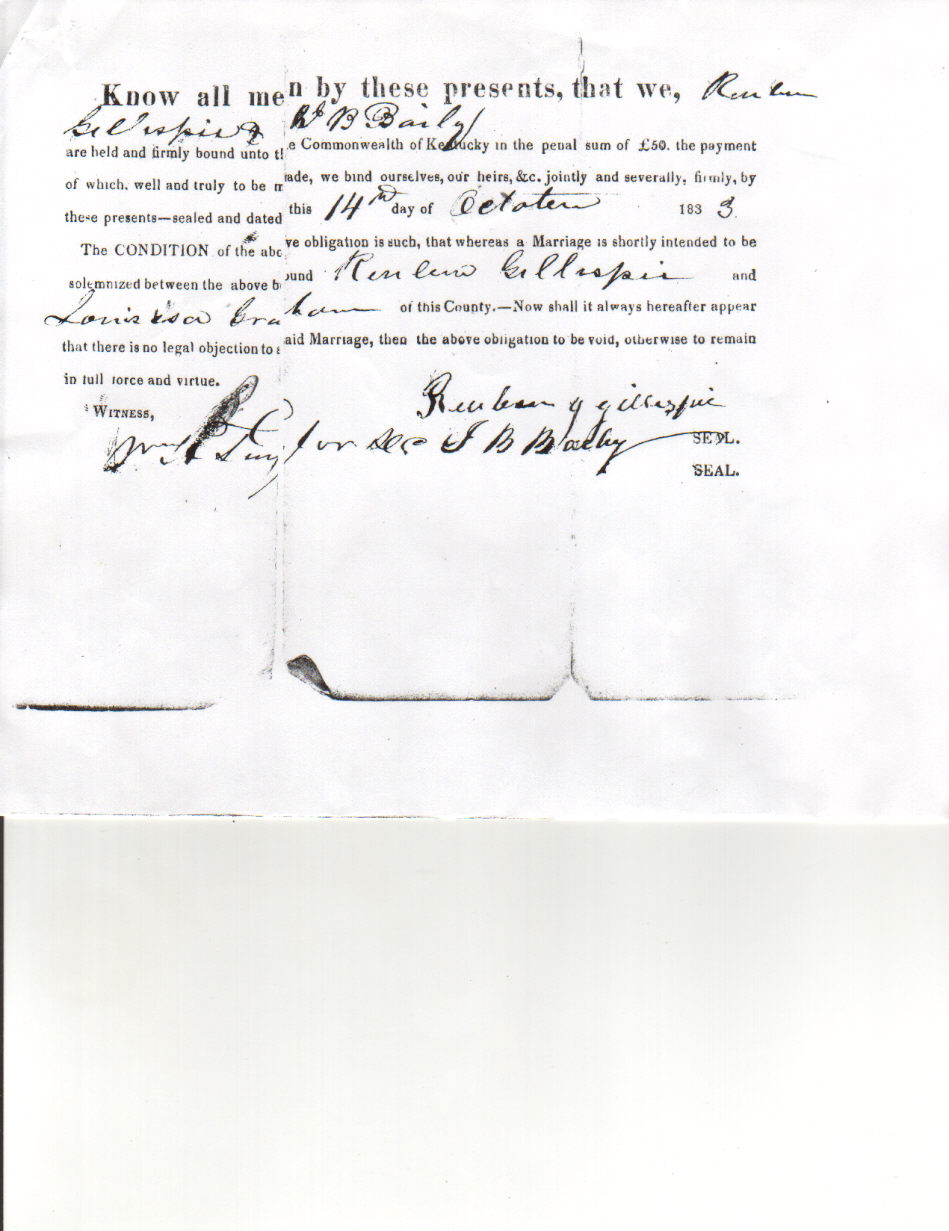 Know all men by these presents, that we, Reuben
Gillespie & B Baily
are held and firmly bound unto the Commonwealth of Kentucky in the penal sum of £50. the payment
of which, well and truly to be made, we bind ourselves, our heirs, &c. jointly and severally, firmly, by
these presents—sealed and dated this 14th day of October 1833.
The CONDITION of the above obligation is such, that whereas a Marriage is shortly intended to be
solemnized between the above bound Reuben Gillespie and
Louisa Graham of this County.—Now shall it always hereafter appear
that there is no legal objection to said Marriage, then the above obligation to be void, otherwise to remain
in full force and virtue.
WITNESS, Reuben G gillespie
for J B Baily SEAL.
SEAL.